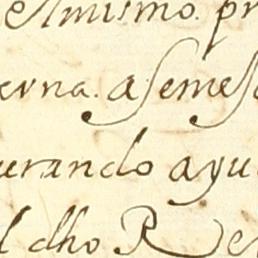 elmismo. pr
erna. asemesa
urando ayu
l dho Re